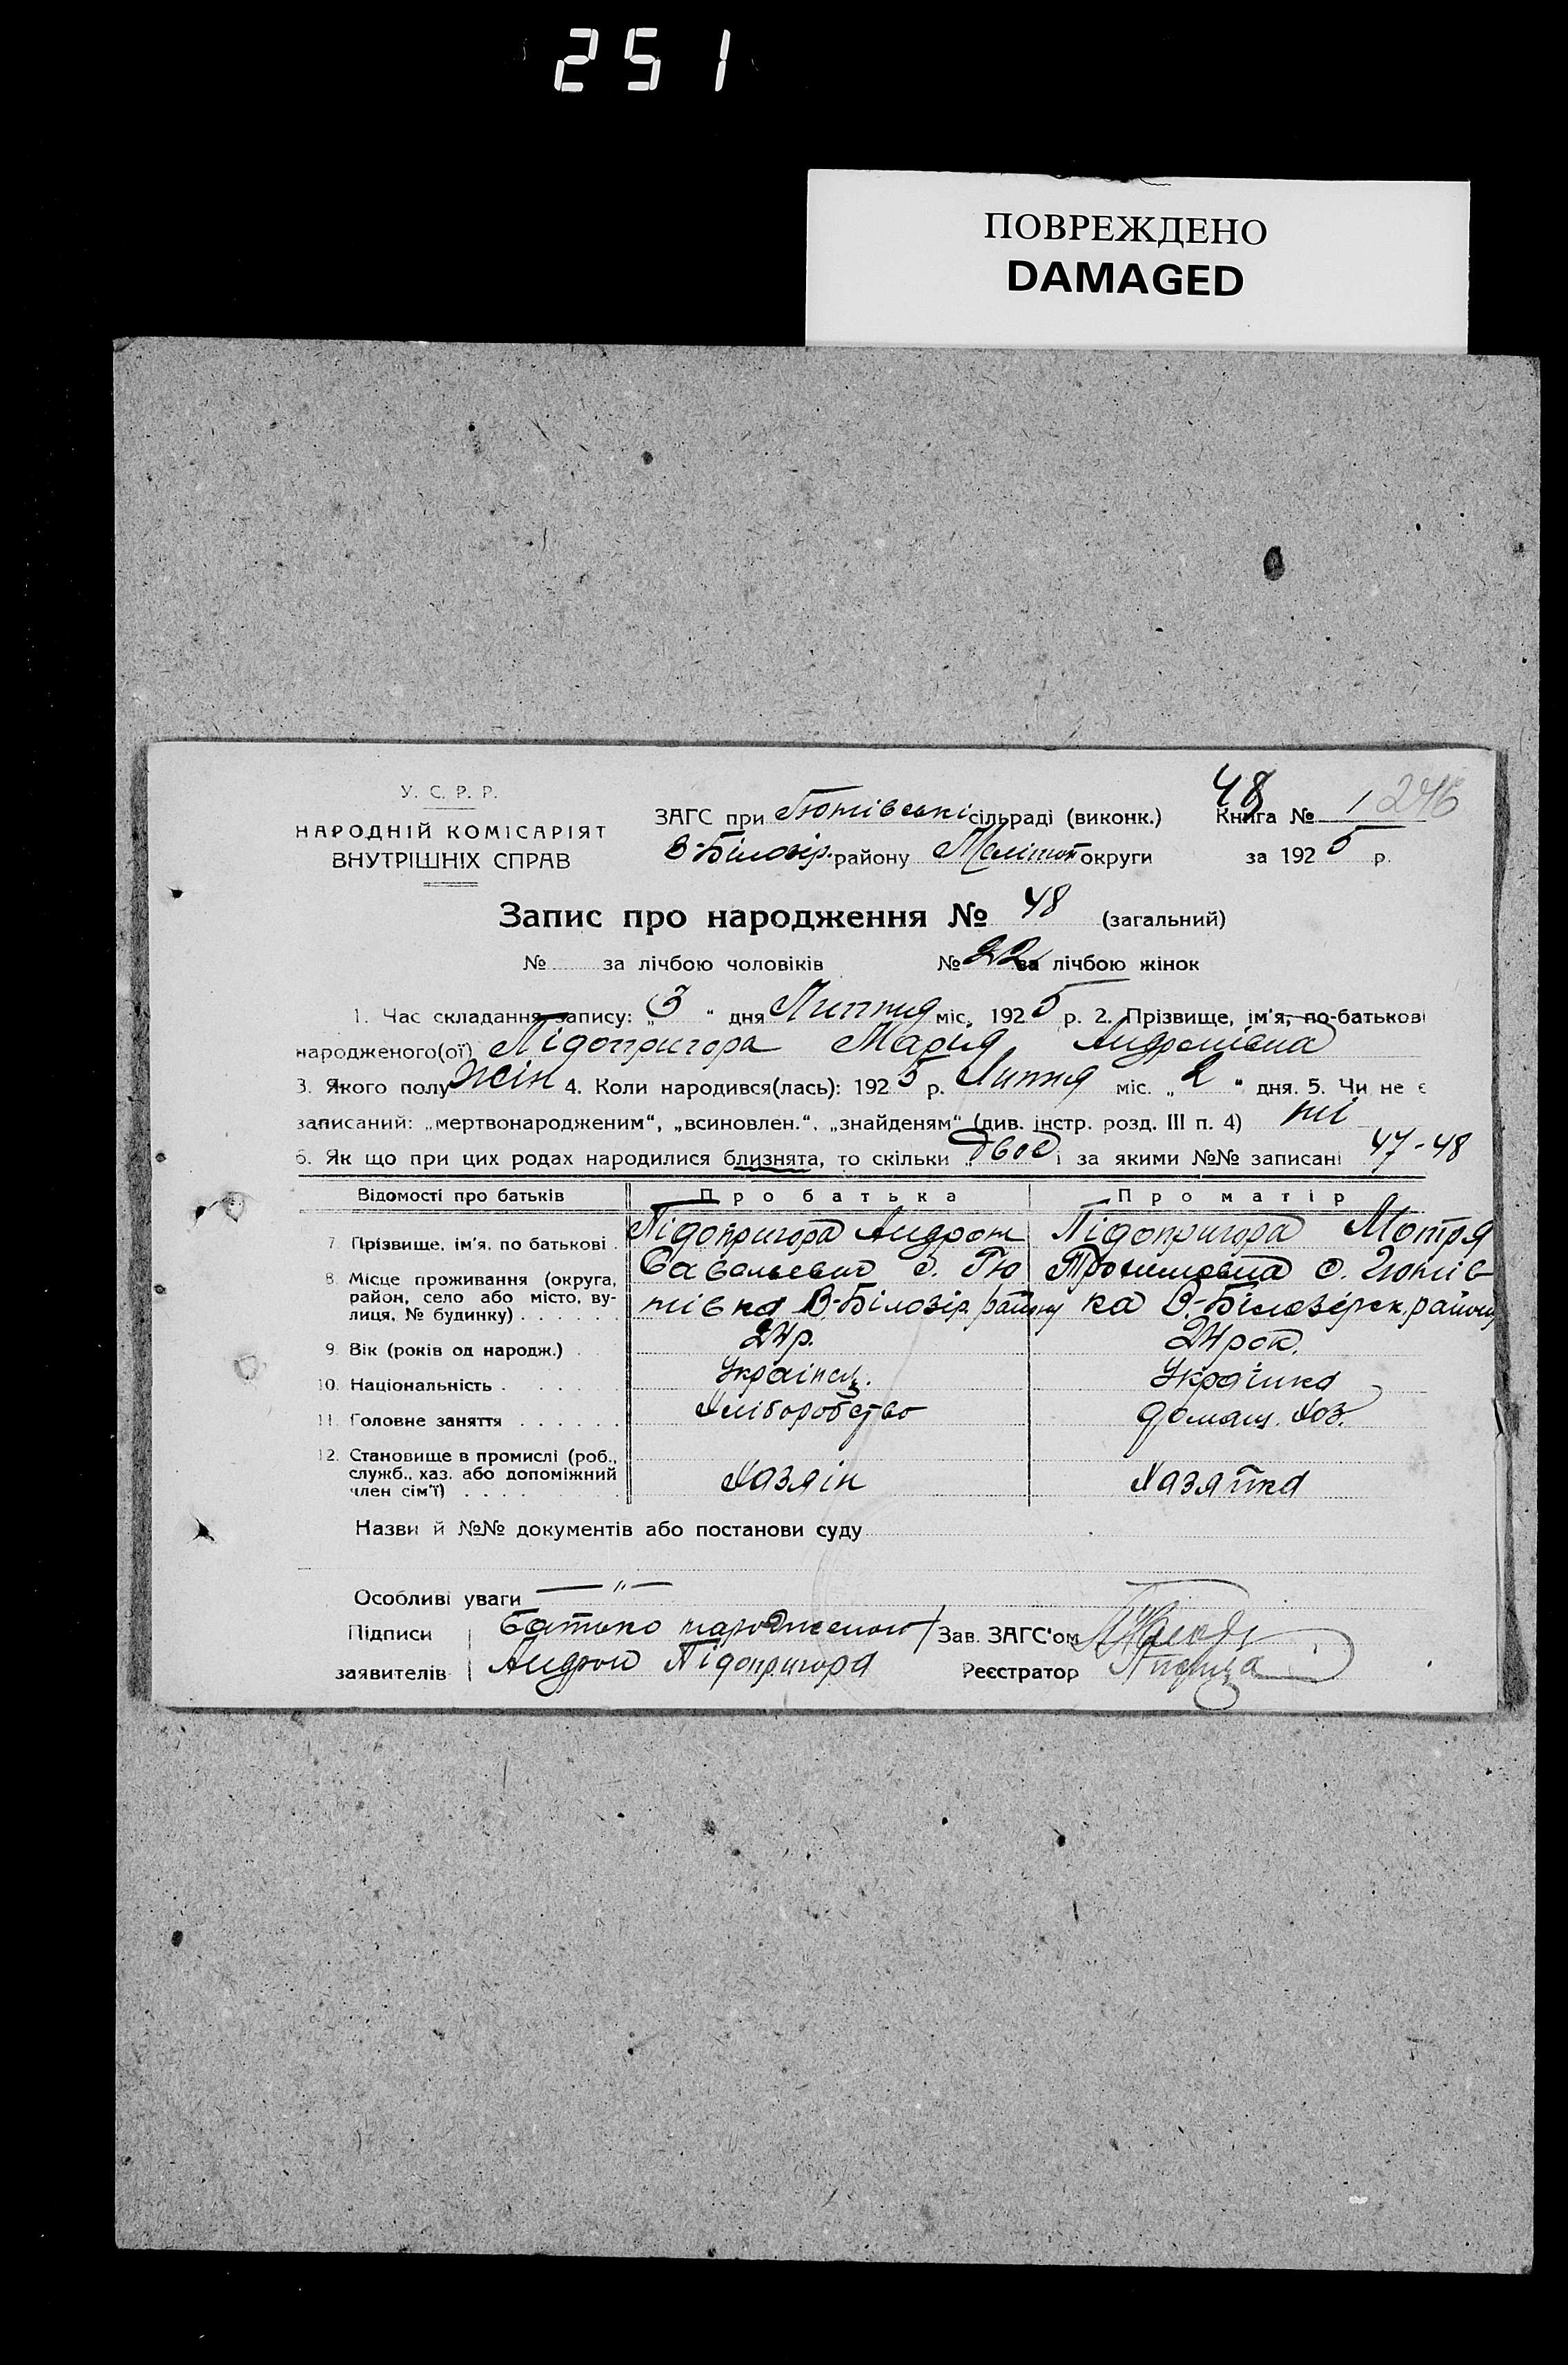 251
ПОВРЕЖДЕНО
DAMAGED
У. С. Р. Р.
НАРОДНІЙ КОМІСАРІЯТ
ВНУТРІШНІХ СПРАВ
ЗАГС при Гюнівські сільраді (виконк.)
В-Білозір. району Меліт округи
48
Книга № 1 246
за 1925 р.
Запис про народження № 48 (загальний)
№ за лічбою чоловіків № 22 за лічбою жінок
1. Час складання запису: „3 “ дня Липня міс. 1925 р. 2. Прізвище, ім'я, по-батькові
народженого(ої) Підопригора Марія Андронівна
3. Якого полу жін 4. Коли народився(лась): 1925 р. Липня міс. „ 2 “ дня. 5. Чи не є
записаний: „мертвонародженим“, „всиновлен.“, „знайденям“ (див. інстр. розд. III п. 4) ні
6. Як що при цих родах народилися близнята, то скільки „двоє і за якими №№ записані 47-48
Відомості про батьків Про батька Про матір
7. Прізвище, ім'я, по батькові . Підопригора Андрон Підопригора Мотря
8. Місце проживання (округа, район, село або місто, вулиця, № будинку) . . . . . . с. Гюнівка В-Білозір. району с. Гюнівка В-Білозерск. району
9. Вік (років од народж.) . 24 р. 24 рок.
10. Національність . . . . . Українец. Українка
11. Головне заняття . . . . . . Хліборобство домаш. хоз.
12. Становище в промислі (роб., служб., хаз. або допоміжний член сім'ї) . . . . Хазяін Хазяйка
Назви й №№ документів або постанови суду
Особливі уваги — „ —
Підписи Батько народженої Зав. ЗАГС'ом
заявителів Андрон Підопригора Реєстратор